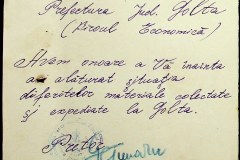 Prefectura Jud. Golta
(Biroul Economică)
Avem onoare a Vă înainta
alăturat situația
diferitelor materiale colectate
și expediate la Golta.
Pretor